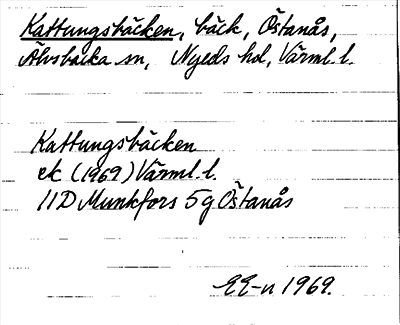 Kattungsbäcken, bäck, Östanås,
Älvsbacka sn, Nyeds hd, Värml. l.
Kattungsbäcken
ek (1969) Värml. l.
11D Munkfors 5g Östanås
EE-n 1969.